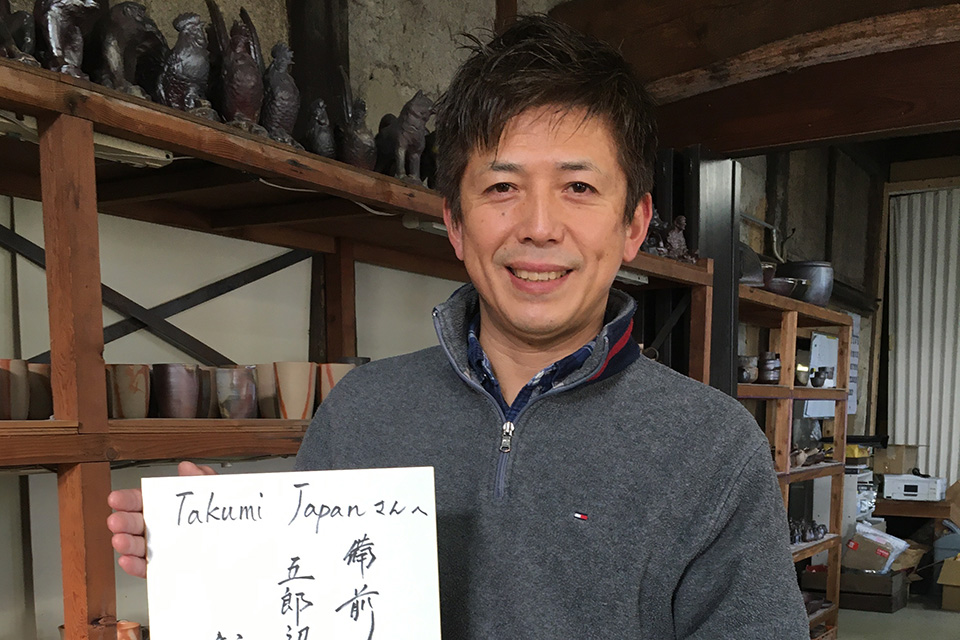 Takumi Japanさんへ
備前
五郎辺